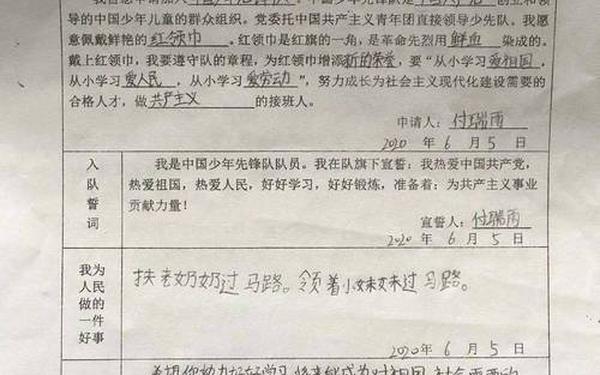 我自愿申请加入中国少年先锋队。中国少年先锋队是中国共产党创立和领
导的中国少年儿童的群众组织。党委托中国共产主义青年团直接领导少先队。我愿
意佩戴鲜艳的红领巾。红领巾是红旗的一角,是革命先烈用鲜血染成的。
戴上红领巾,我要遵守队的章程,为红领巾增添新的荣誉,要“从小学习爱祖国,
从小学习爱人民,从小学习爱劳动”,努力成长为社会主义现代化建设需要的
合格人才,做共产主义的接班人。
申请人:付瑞雨
2020年6月5日
入队誓词
我是中国少年先锋队队员。我在队旗下宣誓:我热爱中国共产党,
热爱祖国,热爱人民,好好学习,好好锻炼,准备着:为共产主义事业
贡献力量!
宣誓人:付瑞雨
2020年6月5日
我为人民做的一件好事
扶老奶奶过马路。领着小妹妹过马路。
2020年6月5日
希望你努力好好学习,将来能成为对祖国、社会需要的